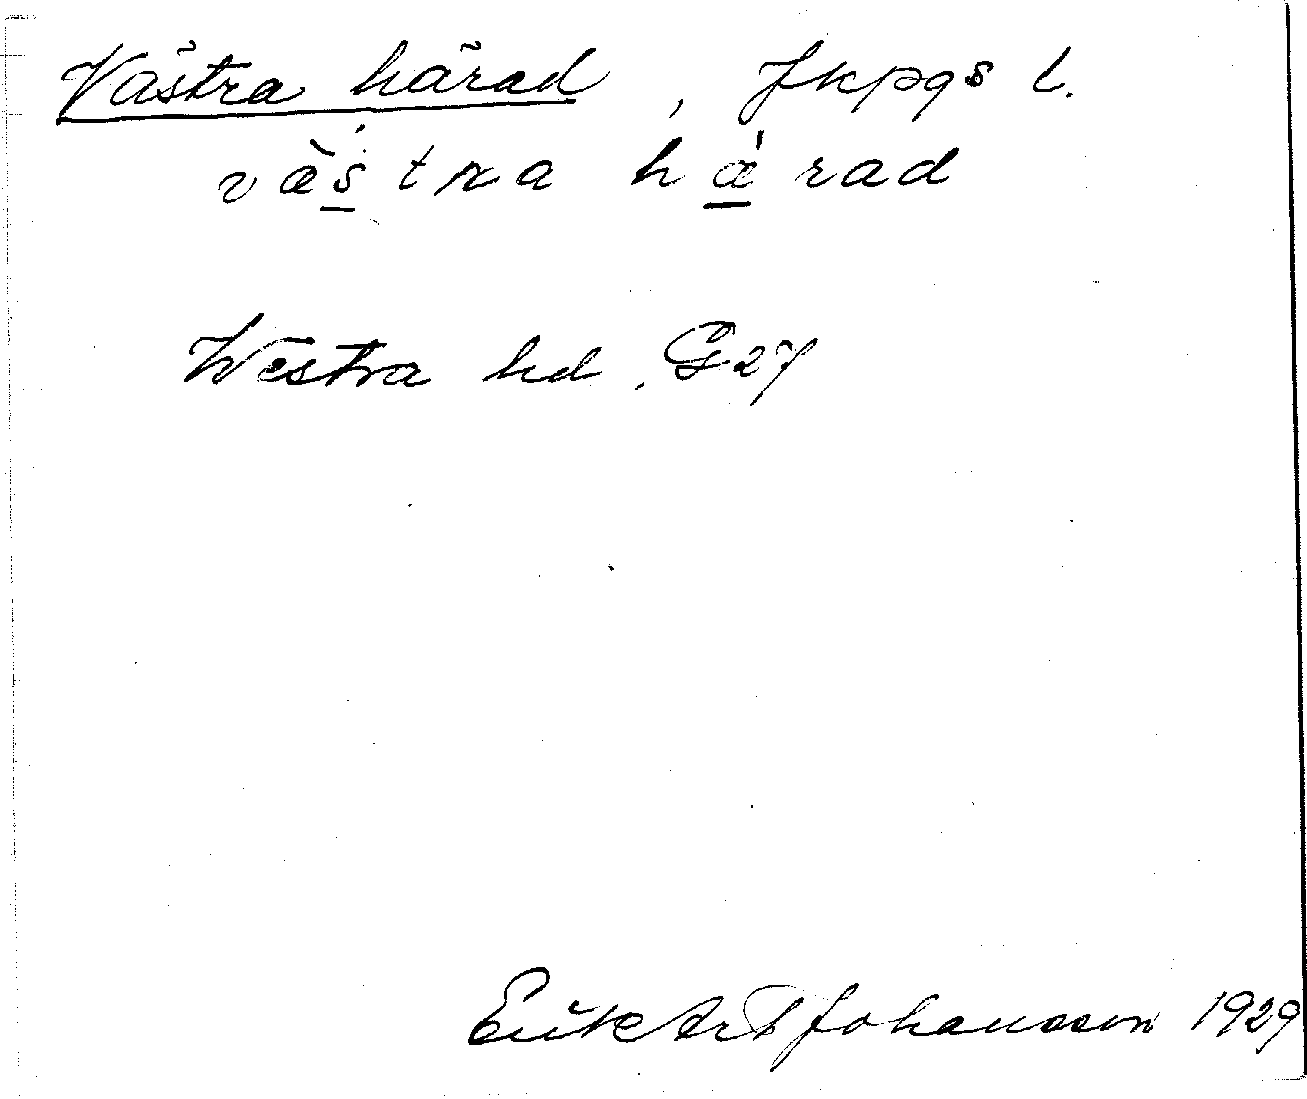 Västra härad, Jkpgs l.
vä̀ś̱tra hǽ̱rad
Westra hd. G 27
Erik Johansson 1929